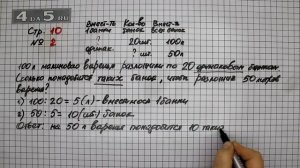 4 ДА 5
.SU
Стр. 10
№ 2
Вмест-ть Кол-во Вмест-ь
1 банки банок всех банок
? 20шт. 100л
одинак.
? шт. 50л
100 л малинового варенья разложили по 20 одинаковым банкам.
Сколько понадобится таких банок, чтобы разложить 50 литров
варенья?
1) 100:20=5(л)-вместимость 1 банки
2) 50:5=10(шт) банок.
Ответ: на 50 л варенья понадобится 10 таких